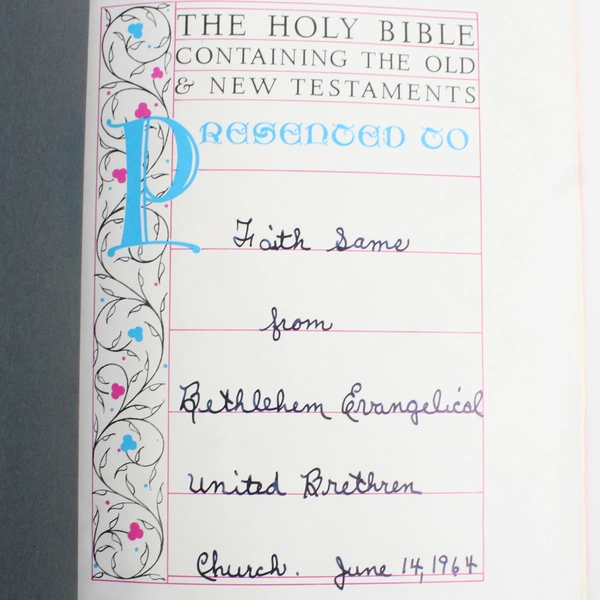 THE HOLY BIBLE
CONTAINING THE OLD
& NEW TESTAMENTS
PRESENTED TO
Faith Same
from
Bethlehem Evangelical
United Brethren
Church. June 14, 1964